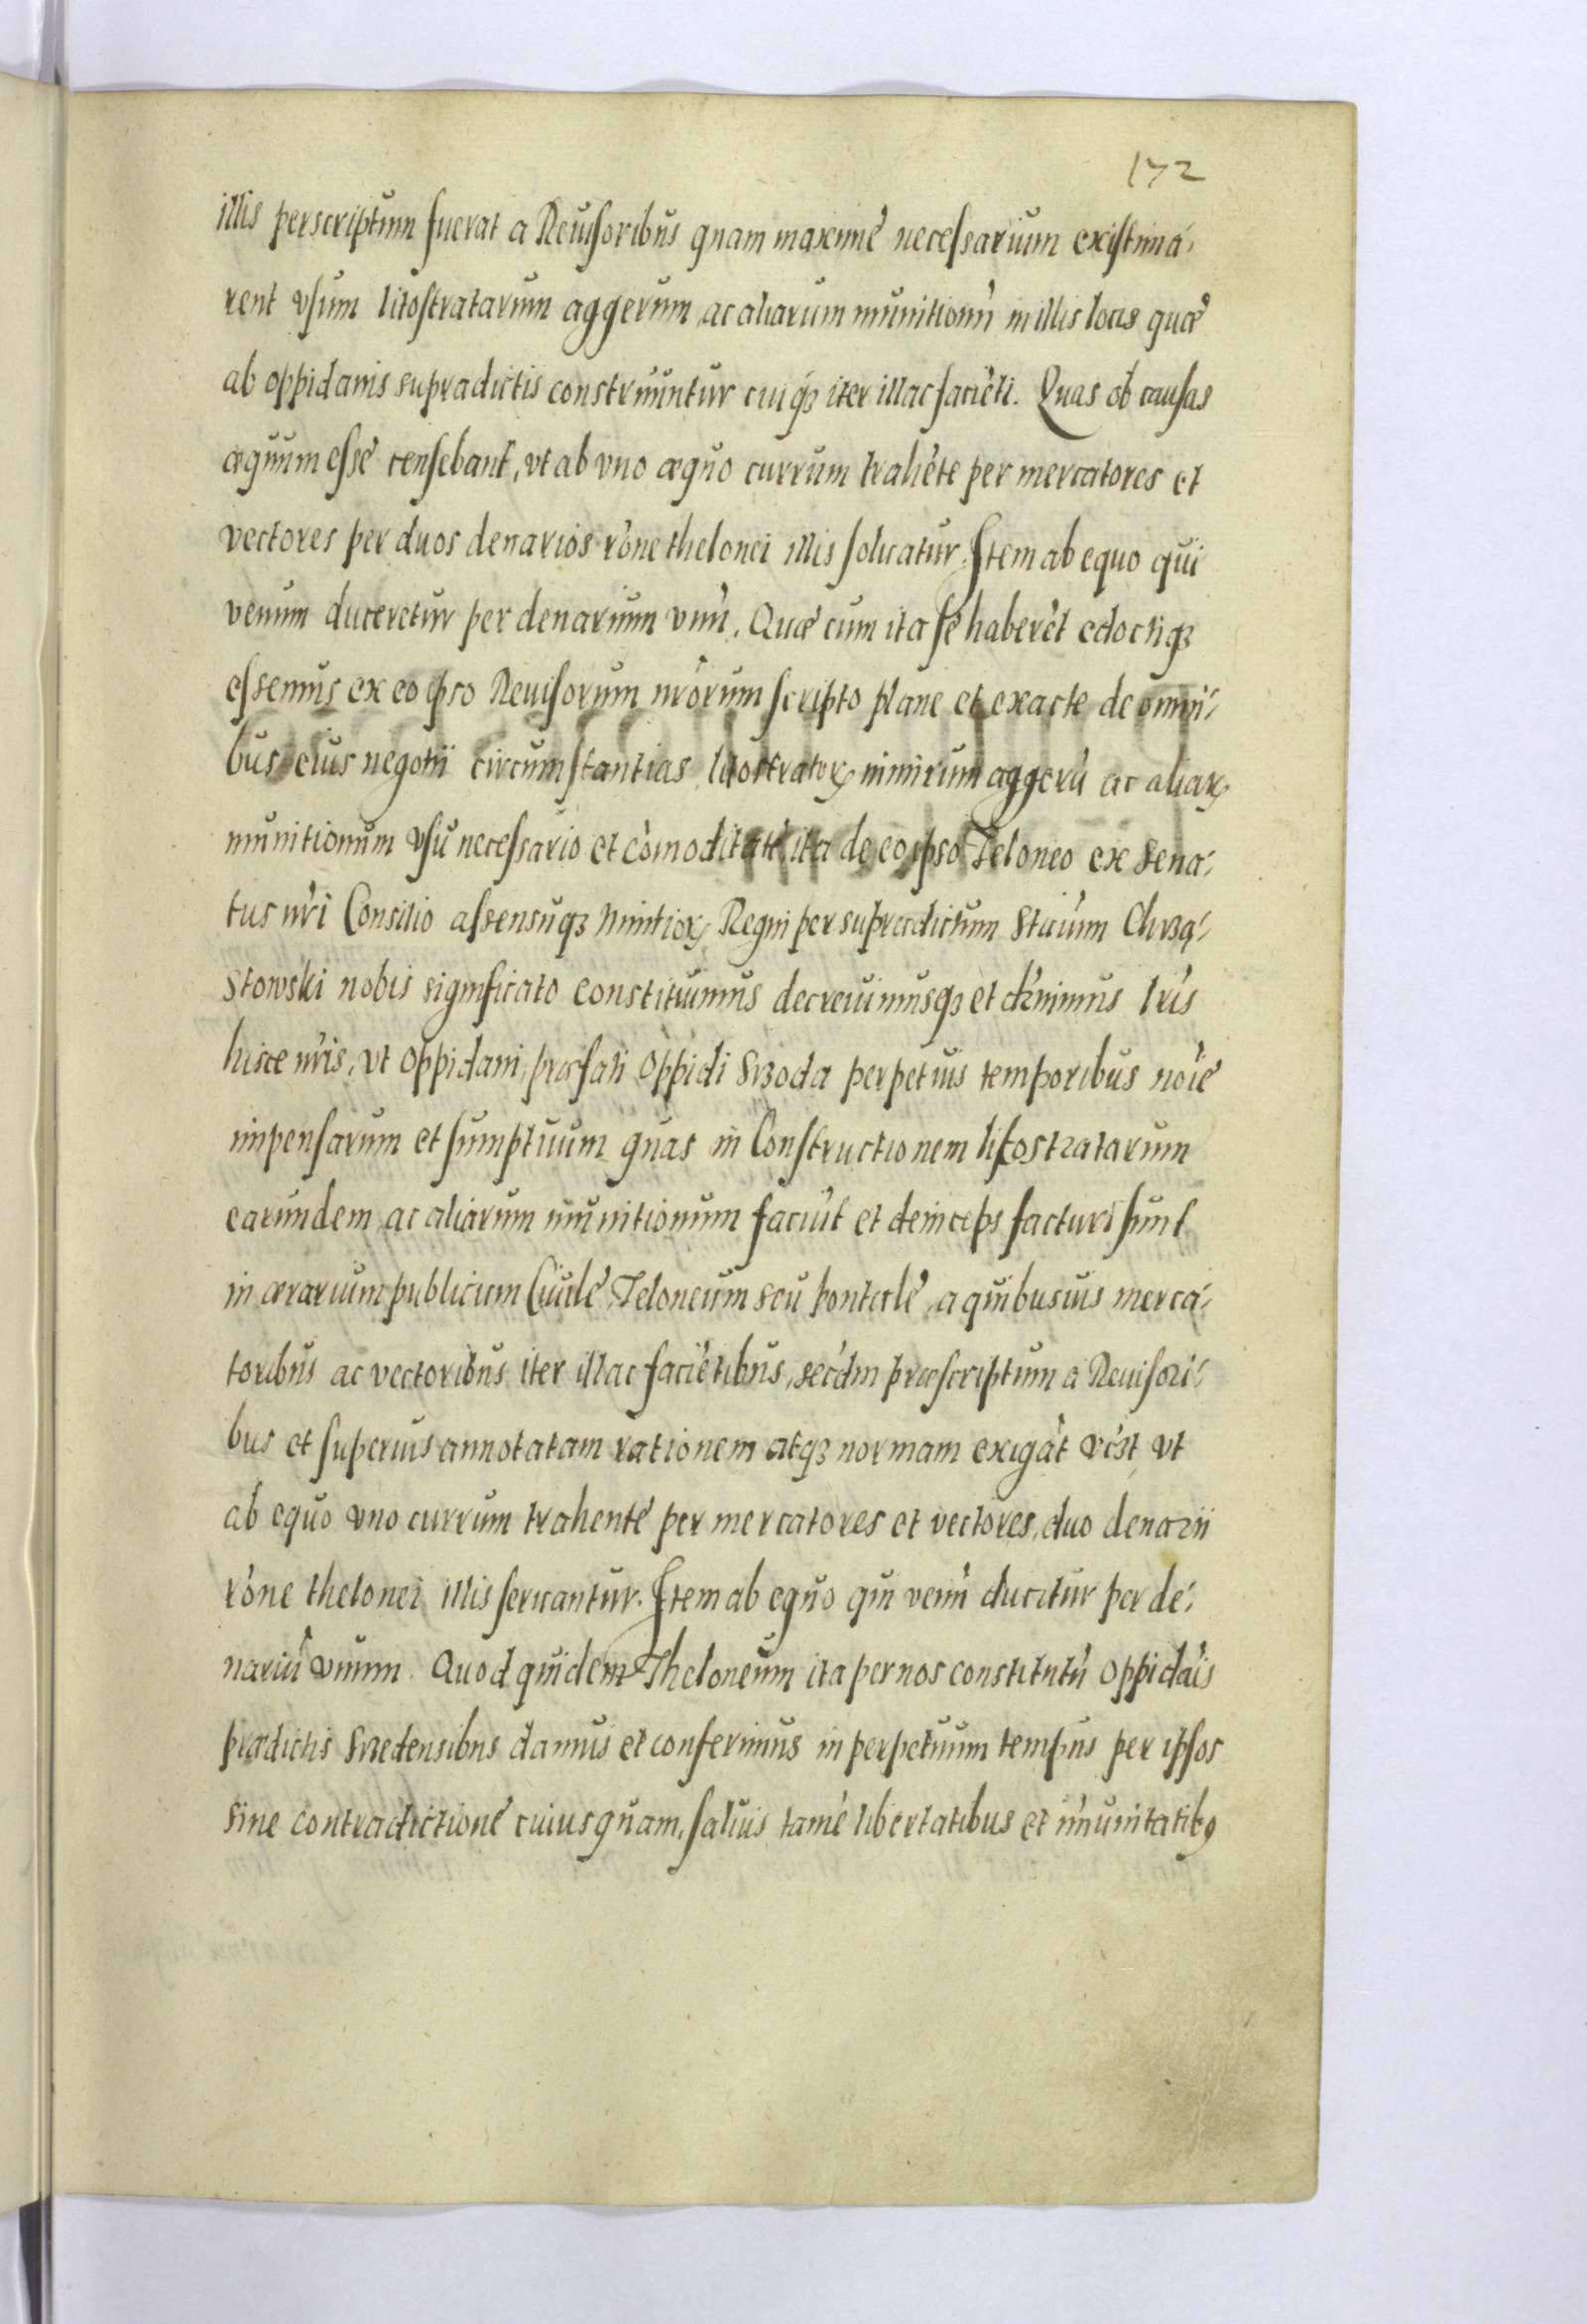 172
illis perscriptum fuerat a Reuisoribus quam maxime necessarium existima-
rent vsum litostratarum aggerum ac aliarum munitionū in illis locis quæ
ab oppidanis supradictis construuntur cuiqȝ iter illac faciēti. Quas ob causas
æquum esse censebant, vt ab vno æquo currum trahēte per mercatores et
vectores per duos denarios rōne thelonei illis soluatur. Item ab equo qui
venum duceretur per denarium vnū. Quæ cum ita se haberēt edoctiqȝ
essemus ex eo ipso Reuisorum nrōrum scripto plane et exacte de omni-
bus eius negotii circumstantias litostratarꝝ nimirum aggerū ac aliarꝝ
munitionum vsu necessario et cōmoditate ita de eo ipso Teloneo ex Sena-
tus nri Consilio assensuqȝ Nuntiorꝝ Regni per supradictum Chrzą-
stowski nobis significato constituimus decreuimusqȝ et lris
hisce nris, vt oppidani præfati oppidi Srzoda perpetuis temporibus noīe
impensarum et sumptuum quas in Constructionem litostratarum
earundem ac aliarum munitionum faciūt et deinceps facturi sunt
in ærarium publicum Ciuile Teloneum seu pontale a quibusuis merca-
toribus ac vectoribus iter illac faciētibus, secdm præscriptum a Reuisori-
bus et superius annotatam rationem atqȝ normam exigāt vt
ab equo vno currum trahente per mercatores et vectores, duo denarii
rōne thelonei illis Item ab equo qui venū ducitur per de-
nariū vnum. Quod quidem Theloneum ita per nos constitutū oppidāis
prædictis Srzedensibus damus et conferimus in perpetuum tempus per ipsos
sine contradictione cuiusquam, saluis tamē libertatibus et īmunitatibꝰ